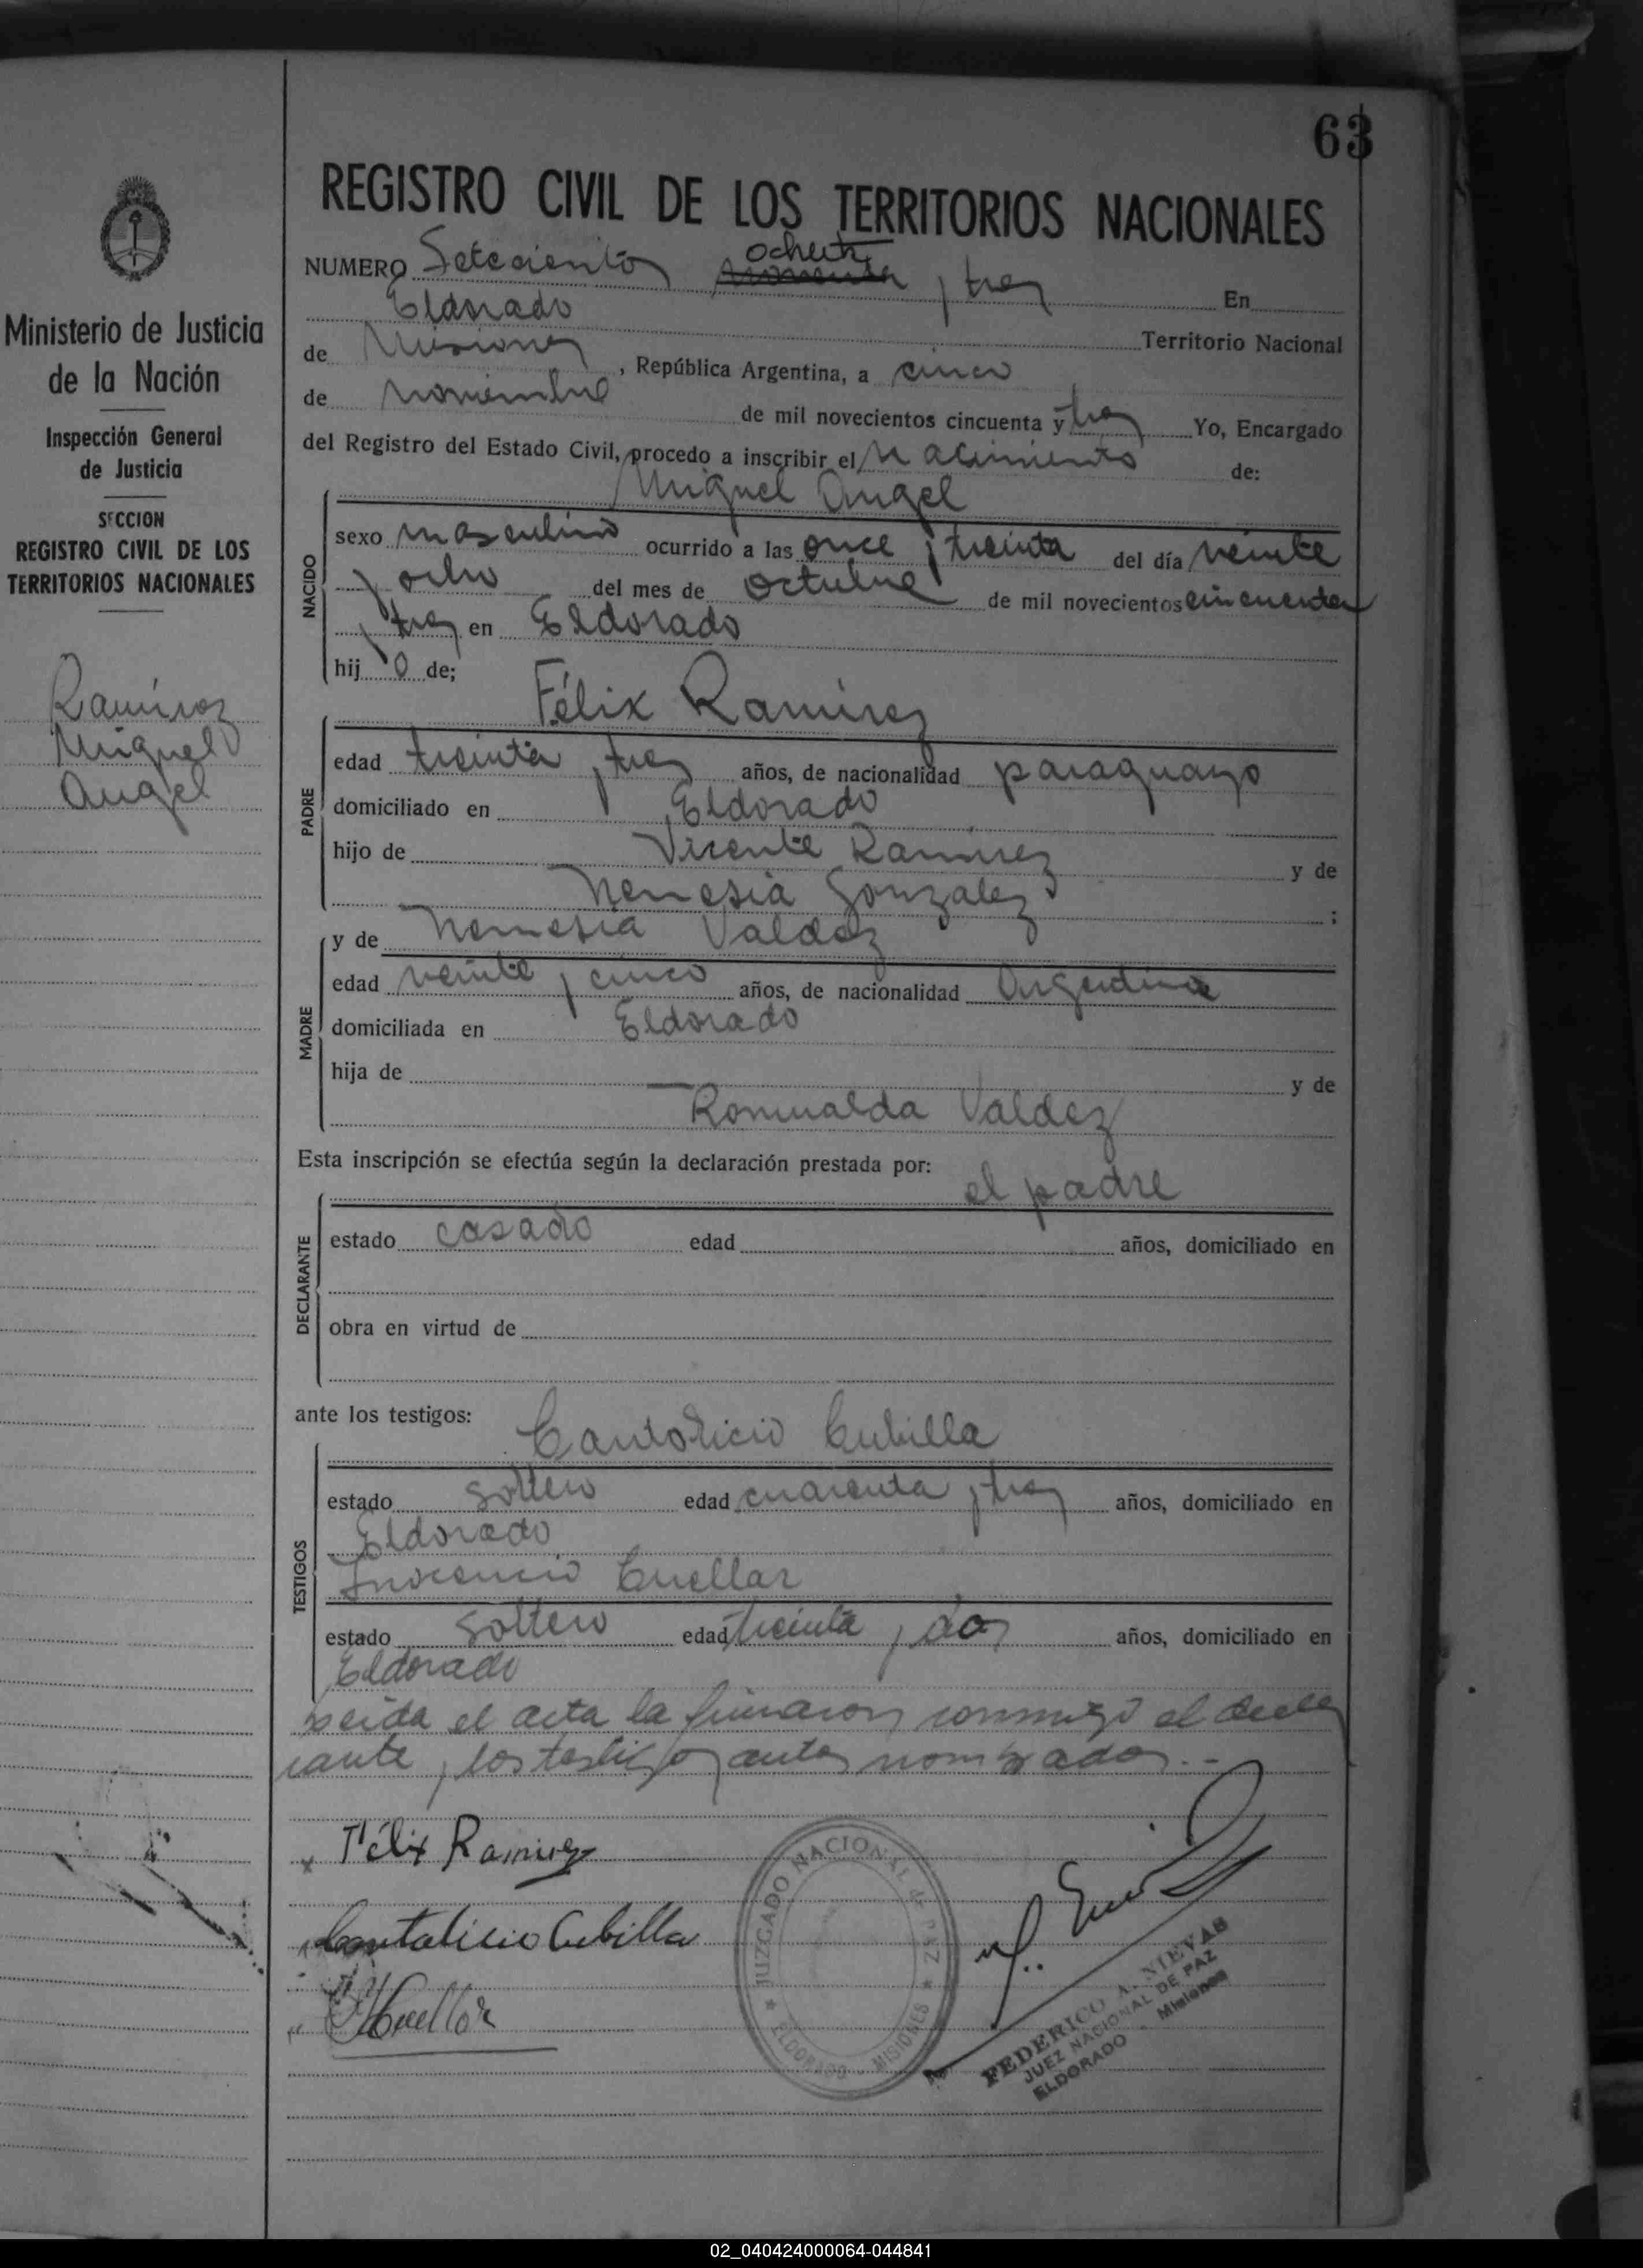 63
REGISTRO CIVIL DE LOS TERRITORIOS NACIONALES
Ministerio de Justicia
de la Nación
Inspección General
de Justicia
SECCION
REGISTRO CIVIL DE LOS
TERRITORIOS NACIONALES
Ramírez
Miguel
Angel
ochenta
NUMERO Setecientos noventa y tres En
Eldorado Territorio Nacional
de Misiones, República Argentina, a cinco
de noviembre de mil novecientos cincuenta y tres Yo, Encargado
del Registro del Estado Civil, procedo a inscribir el nacimiento de:
Miguel Angel
NACIDO
sexo masculino ocurrido a las once y treinta del día veinte
y ocho del mes de octubre de mil novecientos cincuenta
y tres en Eldorado
hij o de;
Félix Ramírez
PADRE
edad treinta y tres años, de nacionalidad paraguayo
domiciliado en Eldorado
hijo de Vicente Ramirez y de
Nemesia Gonzalez ;
MADRE
y de Nemesia Valdez
edad veinte y cinco años, de nacionalidad Argentina
domiciliada en Eldorado
hija de — y de
Romualda Valdez
Esta inscripción se efectúa según la declaración prestada por:
el padre
DECLARANTE
estado casado edad años, domiciliado en
obra en virtud de
ante los testigos:
Cantalicio Cubilla
TESTIGOS
estado soltero edad cuarenta y tres años, domiciliado en
Eldorado
Inocencio Cuellar
estado soltero edad treinta y dos años, domiciliado en
Eldorado
Leida el acta la firmaron conmigo el decla
rante y los testigos antes nombrados.-
x Félix Ramirez
Cantalicio Cubilla
Cuellar
JUZGADO NACIONAL de PAZ
★ ELDORADO - MISIONES ★
FEDERICO A. NIEVAS
JUEZ NACIONAL DE PAZ
ELDORADO - Misiones
02_040424000064-044841